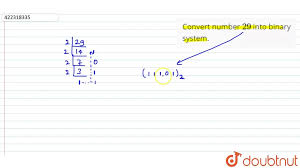 422318335
Convert number 29 into binary
system.
2 29
2 14 1
2 7 0
2 3 1
1 1
(1 1 1 0 1)2
doubtnut